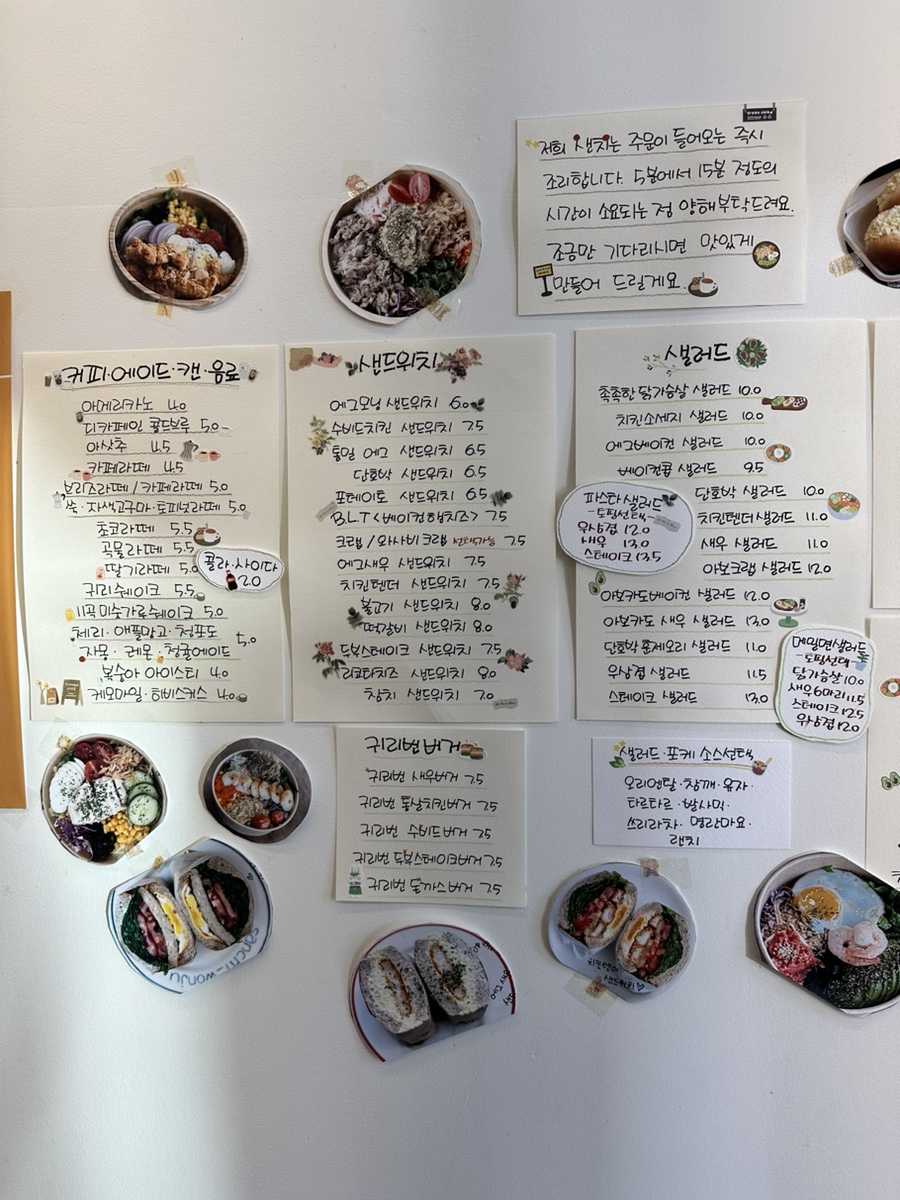 저희 샌치는 주문이 들어오는 즉시
조리합니다. 5분에서 15분 정도의
시간이 소요되는 점 양해부탁드려요.
조금만 기다리시면 맛있게
만들어 드릴게요.
커피·에이드·캔·음료
아메리카노 4.0
디카페인 콜드부루 5.0
아샷추 4.5
카페라떼 4.5
브리즈라떼 / 카페라떼 5.0
쑥·자색고구마·토피넛라떼 5.0
초코라떼 5.5
곡물라떼 5.5
딸기라떼 5.0
귀리쉐이크 5.5
11곡 미숫가루쉐이크 5.0
체리·애플망고·청포도
자몽·레몬·청귤에이드 5.0
복숭아 아이스티 4.0
케모마일·히비스커스 4.0
콜라·사이다
2.0
샌드위치
에그모닝 샌드위치 6.0
수비드치킨 샌드위치 7.5
통밀 에그 샌드위치 6.5
단호박 샌드위치 6.5
포테이토 샌드위치 6.5
B.L.T <베이컨햄치즈> 7.5
크랩 / 와사비크랩 선택가능 7.5
에그새우 샌드위치 7.5
치킨텐더 샌드위치 7.5
불고기 샌드위치 8.0
떡갈비 샌드위치 8.0
두부스테이크 샌드위치 7.5
리코타치즈 샌드위치 8.0
참치 샌드위치 7.0
샐러드
촉촉한 닭가슴살 샐러드 10.0
치킨소세지 샐러드 10.0
에그베이컨 샐러드 10.0
베이컨콥 샐러드 9.5
단호박 샐러드 10.0
치킨텐더샐러드 11.0
새우 샐러드 11.0
아보크랩 샐러드 12.0
아보카도베이컨 샐러드 12.0
아보카도 새우 샐러드 13.0
단호박 훈제오리 샐러드 11.0
우삼겹 샐러드 11.5
스테이크 샐러드 13.0
파스타샐러드
-토핑선택-
우삼겹 12.0
새우 13.0
스테이크 13.5
메밀면샐러드
-토핑선택-
닭가슴살 10.0
새우6마리 11.5
스테이크 12.5
우삼겹 12.0
귀리번버거
귀리번 새우버거 7.5
귀리번 통살치킨버거 7.5
귀리번 수비드버거 7.5
귀리번 두부스테이크버거 7.5
귀리번 돈까스버거 7.5
샐러드·포케 소스선택
오리엔탈·참깨·유자·
타르타르·발사믹·
쓰리라차·명란마요·
랜치
sanchi-wonju
치킨텐더
샌드위치♡